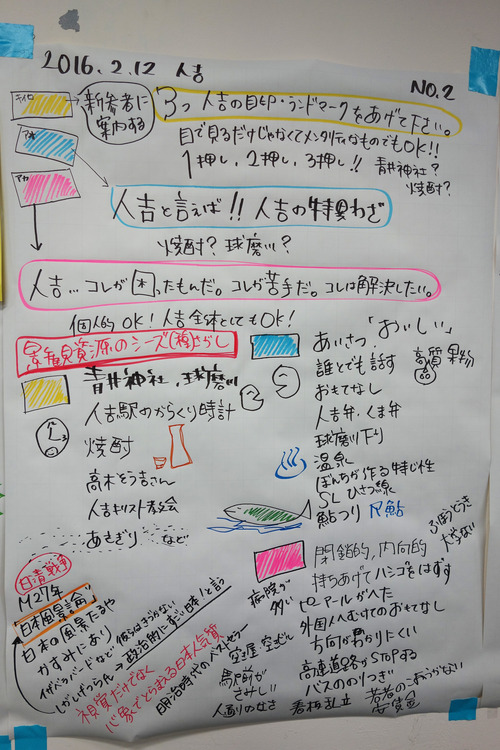 2016.2.12 人吉
NO.2
キイロ
新参者に
案内する
3つ 人吉の目印・ランドマークをあげて下さい。
目で見るだけじゃなくてメンタリティなものでもOK!!
1押し、2押し、3押し!! 青井神社?
焼酎?
アオ
人吉と言えば!! 人吉の特異わざ
焼酎? 球磨川?
アカ
人吉…コレが困ったもんだ。コレが苦手だ。コレは解決したい。
個人的OK! 人吉全体としてもOK!
景観資源のシーズ(種)さがし
青井神社、球磨川
人吉駅のからくり時計
焼酎
高木そう吉さん
人吉キリスト教会
あさぎり など
あいさつ「おいしい」
誰とでも話す
高質果物
おもてなし
人吉弁・くま弁
球磨川下り
温泉
ぼんちが作る特じ性
SL ひさつ線
鮎つり 尺鮎
閉鎖的、内向的
持ちあげてハシゴをはずす
病院が
多い
ピアールがへた
外国人へむけてのおもてなし
方向がわかりにくい
高速道路がSTOPする
バスののりつぎ
看板乱立
空き屋 空きビル
駅前が
さみしい
人通りのなさ
日清戦争
M27年
"日本風景論"
日本の風景たるや
かすみにあり
政治的にずい日本!と言う
視覚だけでなく
心象でとらまえる日本人気質
明治時代のベストセラー